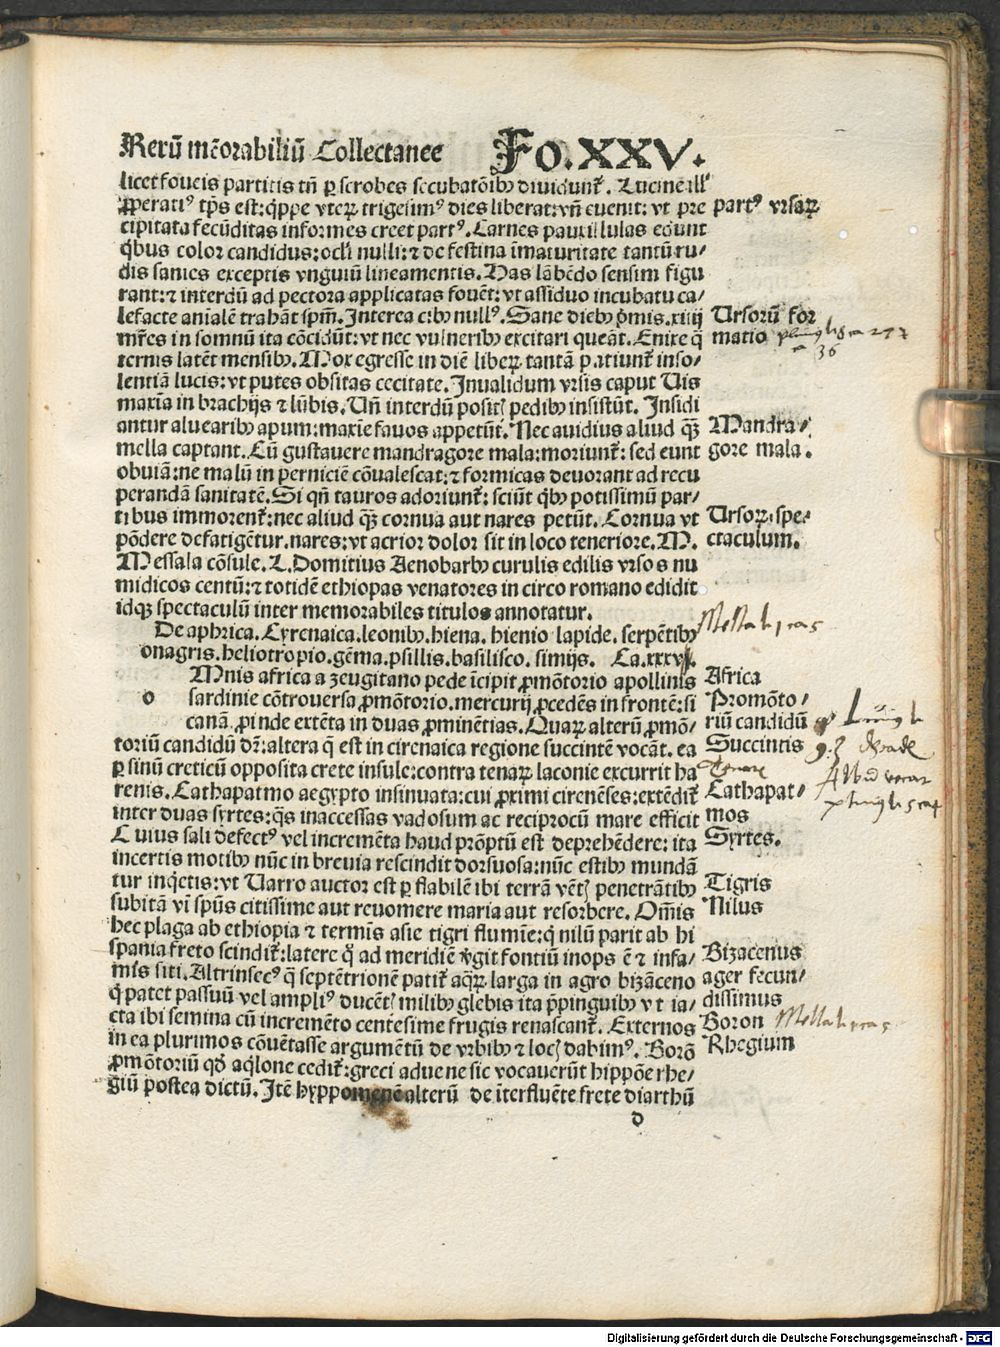 Rerū mēorabiliū Collectanee Fo.XXV.
licet foueis partitis tñ ꝑ scrobes secubatōibꝰ diuidunť. Lucine illꝰ
ꝓperatiꝰ tp̄s est: q̄ppe vterꝝ trigesimꝰ dies liberat: vñ euenit: vt pre
cipitata fecūditas informes creet partꝰ. Carnes pauxillulas edunt
qͥbus color candidus: oculi nulli: ⁊ de festina īmaturitate tantū ru/
dis sanies exceptis vnguiū lineamentis. Has lābēdo sensim figu
rant: ⁊ interdū ad pectora applicatas fouēt: vt assiduo incubatu ca/
lefacte anialē trahāt spm̄. Interea cibꝰ nullꝰ. Sane diebꝰ pͥmis. xiiij
mr̄es in somnū ita cōcidūt: vt nec vulneribꝰ excitari queāt. Enixe q̄
ternis latēt mensibꝰ. Mox egresse in diē liberꝝ tantā patiunť inso/
lentiā lucis: vt putes obsitas cecitate. Inualidum vrsis caput Uis
maxīa in brachijs ⁊ lūbis. Uñ interdū positꝭ pedibꝰ insistūt. Insidi
antur aluearibꝰ apum: maxie fauos appetūt. Nec auidius aliud q̄ꝫ
mella captant. Cū gustauere mandragore mala: moriunť: sed eunt
obuiā: ne malū in perniciē cōualescat: ⁊ formicas deuorant ad recu
perandā sanitatē. Si qñ tauros adoriunť: sciūt qͥbꝰ potissimū par/
tibus immorenť: nec aliud q̄ꝫ cornua aut nares petūt. Cornua vt
pōdere defatigētur. nares: vt acrior dolor sit in loco teneriore. M.
Messala cōsule. L. Domitius Aenobarbꝰ curulis edilis vrsos nu
midicos centū: ⁊ totidē ethiopas venatores in circo romano edidit
idqꝫ spectaculū inter memorabiles titulos annotatur.
De aphrica. Cyrenaica. leonibꝰ. hiena. hienio lapide. serpētibꝰ
onagris. heliotropio. gēma. psillis. basilisco. simijs. Ca. xxxvj.
o Mnis africa a zeugitano pede īcipit ꝓmōtorio apollinis
sardinie cōtrouersa ꝓmōtorio. mercurij ꝓcedēs in frontē: si
canā. ꝓinde extēta in duas ꝓminētias. Quarꝝ alterū ꝓmō/
toriū candidū dr̄: altera q̄ est in cirenaica regione succintē vocāt. ea
ꝑ sinū creticū opposita crete insule: contra tenarꝝ laconie excurrit ha
renis. Cathapatmo aegypto insinuata: cui ꝓximi cirenēses: extēdiť
inter duas syrtes: q̄s inaccessas vadosum ac reciprocū mare efficit
Cuius sali defectꝰ vel incremēta haud prōptū est deprehēdere: ita
incertis motibꝰ nūc in breuia rescindit dorsuosa: nūc estibꝰ mundā
tur inq̄etis: vt Uarro auctor est ꝑ flabilē ibi terrā vētꝭ penetrātibꝰ
subitā vī spūs citissime aut reuomere maria aut resorbere. Om̄is
hec plaga ab ethiopia ⁊ termīs asie tigri flumīe: q̄ nilū parit ab hi
spania freto scindiť: latere qͦ ad meridiē v̓git fontiū inops ē ⁊ infa/
mīs siti. Altrinsecꝰ q̄ septētrionē patiť aq̄rꝝ larga in agro bizāceno
qͥ patet passuū vel ampliꝰ ducētꝭ milibꝰ glebis ita p̄pinguibꝰ vt ia/
cta ibi semina cū incremēto centesime frugis renascanť. Externos
in ea plurimos cōuētasse argumētū de vrbibꝰ ⁊ locꝭ dabimꝰ. Borō
ꝓmōtoriū qd̄ aq̄lone cediť: greci aduene sic vocauerūt hippōe rhe/
giū postea dictū. Itē hyppomenē alterū de īterfluēte frete diarthū
d
partꝰ vrsaꝝ
Ursorū for
matio
36
Mandra/
gore mala.
Ursoꝝ. spe/
ctaculum.
Africa
Promōto/
riū candidū
Succintis
Cathapat/
mos
Syrtes.
Tigris
Nilus
Bizacenus
ager fecun/
dissimus
Boron
Rhegium
Digitalisierung gefördert durch die Deutsche Forschungsgemeinschaft - DFG